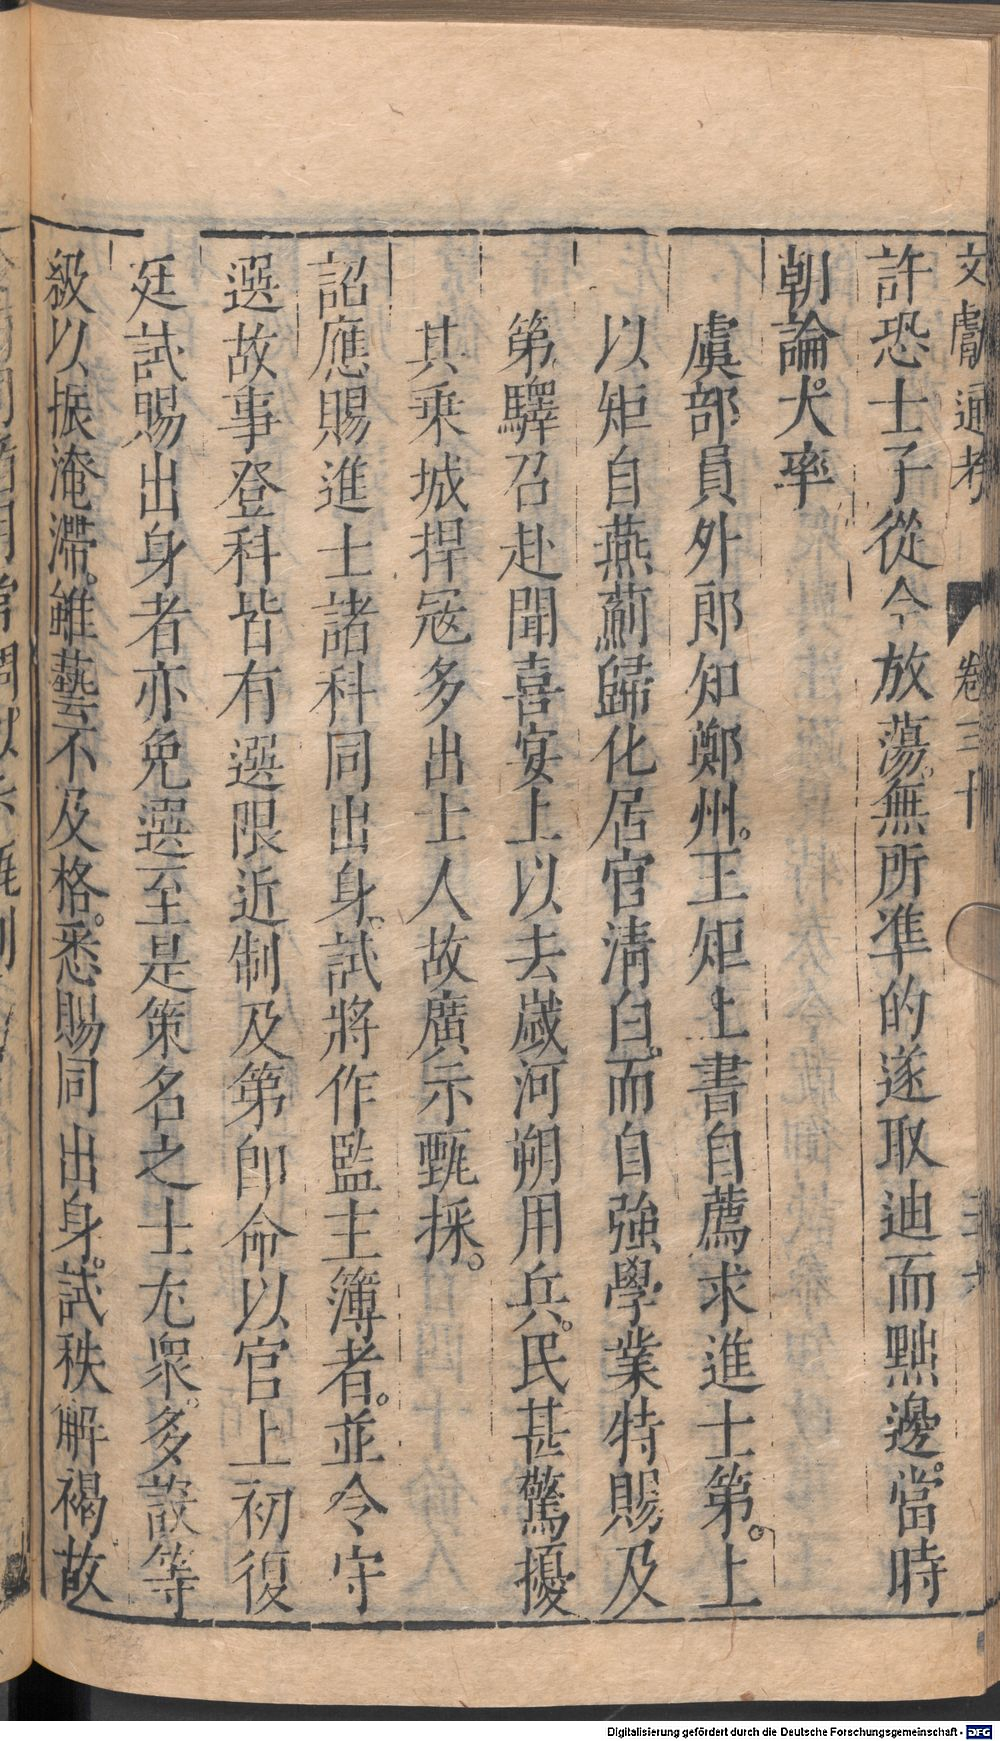 文獻通考 卷三十
許恐士子從今放蕩。無所準的遂取迪而黜邊。當時
朝論大率
虞部員外郎知鄭州。王矩上書自薦求進士第。上
以矩自燕薊歸化居官淸白。而自強學業特賜及
第驛召赴聞喜宴上以去歲河朔用兵。民甚驚擾
其乘城捍寇多出士人故廣示甄採。
詔應賜進士諸科同出身。試將作監主簿者。並令守
選故事登科皆有選限近制及第卽命以官上初復
廷試賜出身者亦免選至是策名之士尤衆。多設等
級以振淹滯。雖藝不及格。悉賜同出身。試秩解褐故
Digitalisierung gefördert durch die Deutsche Forschungsgemeinschaft - DFG